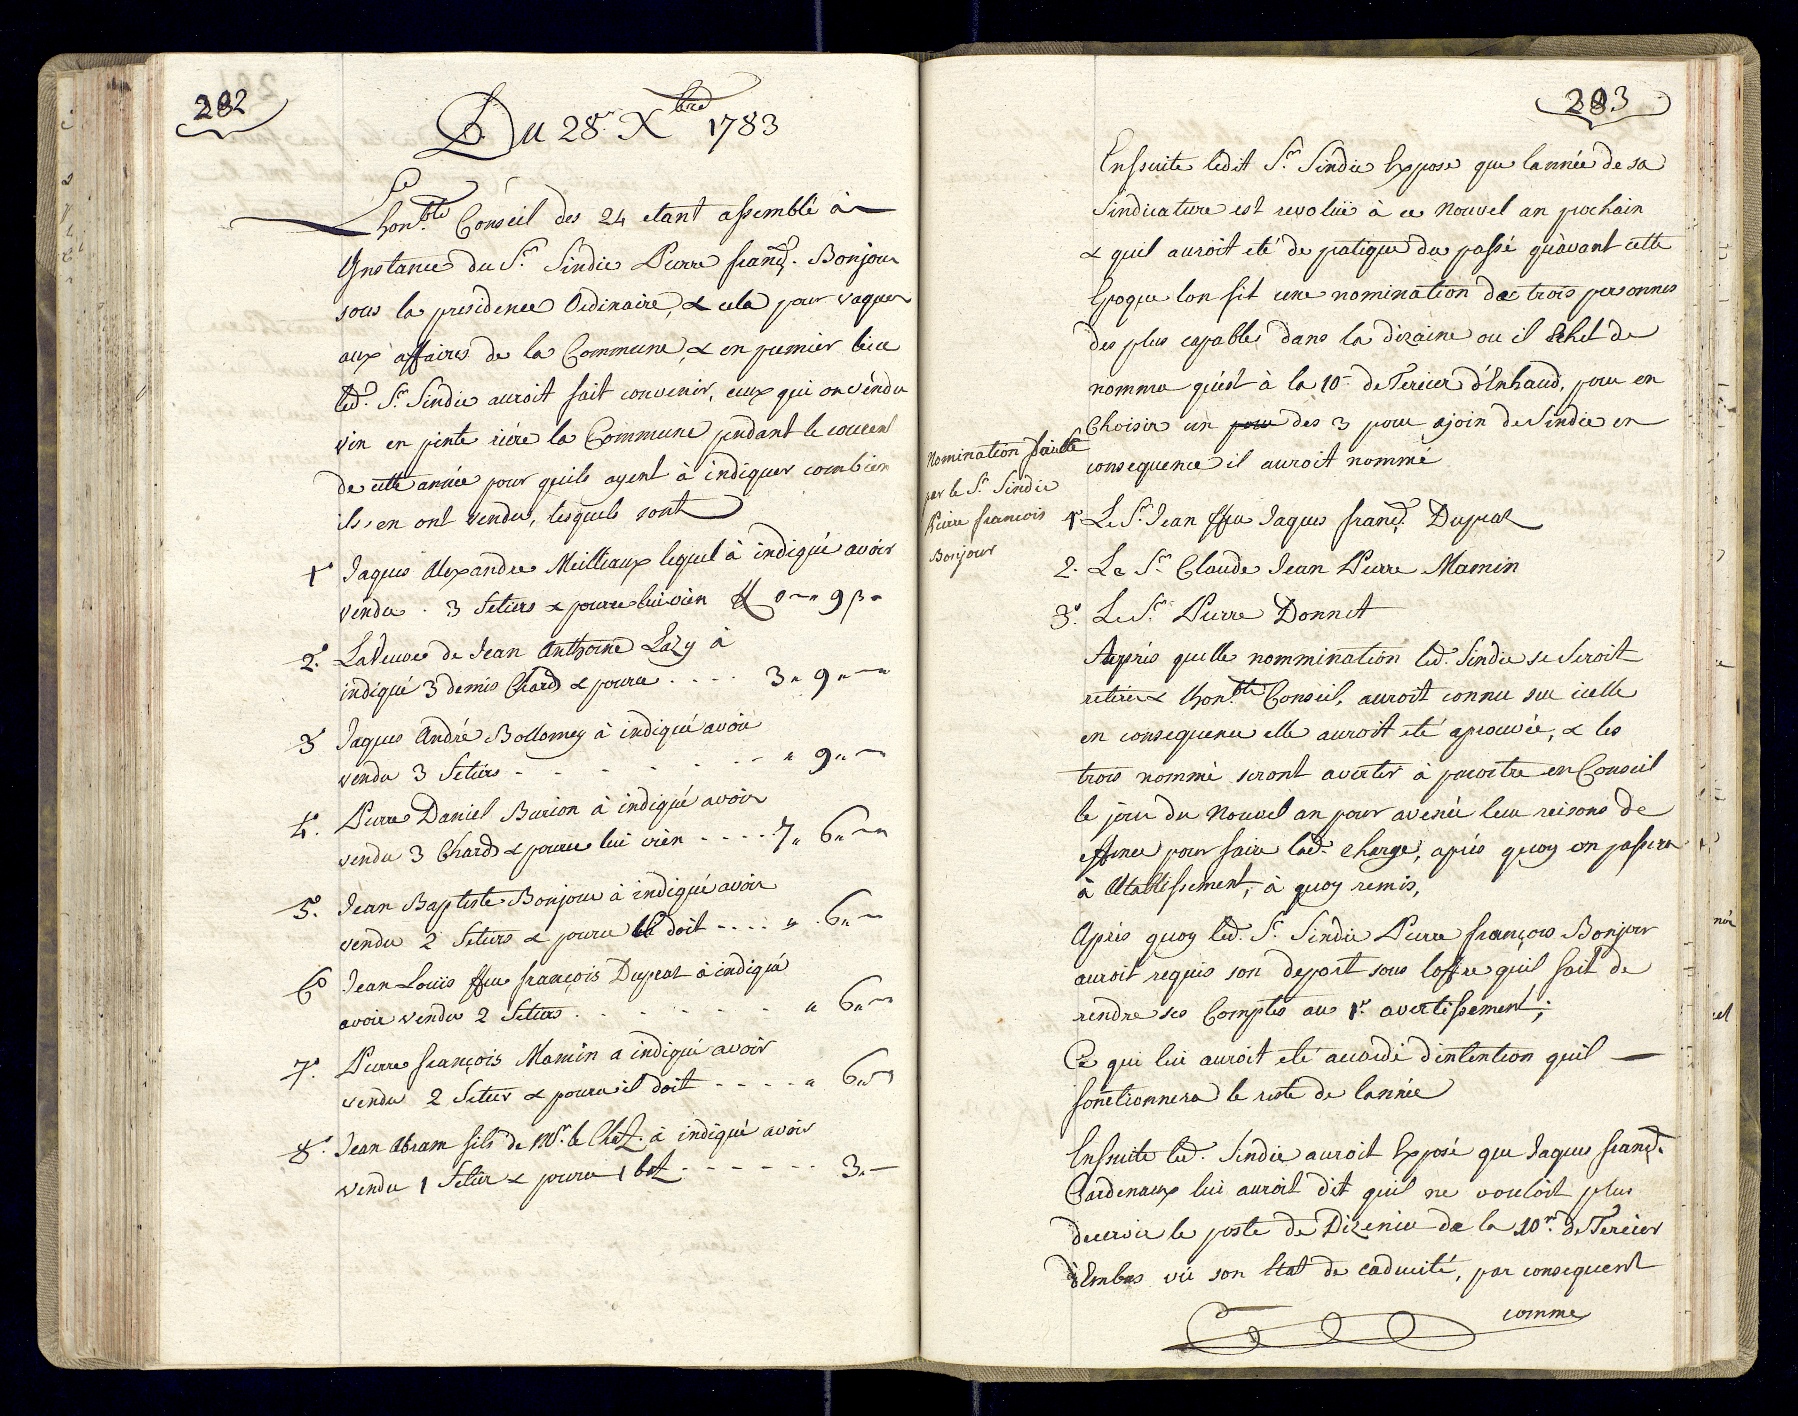 282
Du 28.e Xbre 1783
Le
honble Conseil des 24 etant assemblé à
Instance du Sr. Sindic Pierre franç. Bonjour
sous la presidence Ordinaire, & cela pour vaquer
aux affaires de la Commune, & en premier lieu
led. Sr. Sindic auroit fait convenir, ceux qui on véndu
vin en pinte riére la Commune pendant le courent
de cette année pour quils ayent à indiquer combien
ils en ont vendu, lesquels sont
1° Jaques Alexandre Meilliaux lequel à indiqué avoir
vendu . 3 Setiers & pourre lui vien ff 0 " 9 ß "
2.° La Veuve de Jean Anthoine Lazy à
indiqué 3 demis Chard & poura . . . . 3 " 9 "
3° Jaques André Bollomey à indiqué avoir
vendu 3 Setiers - - - - - - " 9 "
4.° Pierre Daniel Burion à indiqué avoir
vendu 3 Chards & pource lui vien - - - - 7 " 6 "
5.° Jean Baptiste Bonjour à indiqué avoir
vendu 2 Setiers & pource doit - - - - " 6 "
6° Jean Louis ffeu françois Dupraz à indiqué
avoir vendu 2 Setiers . . . . . . " 6 "
7.° Pierre françois Mamin a indiqué avoir
vendu 2 Setier & poura il doit - - - - " 6 "
8.° Jean Abram fils de Mr. le Chât. à indiqué avoir
vendu 1 Setier & poura 1 bat - - - - - - 3 "
283
Ensuite ledit Sr. Sindic Expose que lannée de sa
Sindicature est revolüe à ce Nouvel an prochain
& quil auroit eté de patique du passé quàvant cette
Epoque lon fit une nomination de trois personnes
des plus capables dans la dizaine ou il Echet de
nommer quést à la 10e de Tercier d'Enhaud, pour en
Choisir un pour des 3 pour ajoin de Sindic en
consequence il auroit nommé
Nomination faitte
par le Sr. Sindic
Pierre francois
Bonjour
1° Le Sr. Jean ffeu Jaques franç. Dupraz
2. Le Sr. Claude Jean Pierre Mamin
3.° Le Sr. Pierre Donnet
Aprés quelle nommination led. Sindic se Seroit
retirer & lhonble Conseil, auroit connu sur icelle
en consequence elle auroit eté aprouvée, & les
trois nommé seront avertir à paroitre en Conseil
le jour du Nouvel an pour leu reisons de
pour faire lad. charge, aprés quoy on passera
à Etablissement, à quoy remis,
Aprés quoy led. Sr. Sindic Pierre françois Bonjour
auroit requis son depart sous loffre quil fait de
rendre ses Comptes au 1r. avertissement;
Ce qui lui auroit eté accordé dintention quil —
fonctionnera le reste de lannée
Ensuite led. Sindic auroit Exposé que Jaques franç.
Cardenaux lui auroit dit quil ne vouloit plus
le poste de Dizenier de la 10me. de Tercier
d'Embas vü son Etat de caducité, par consequent
comme